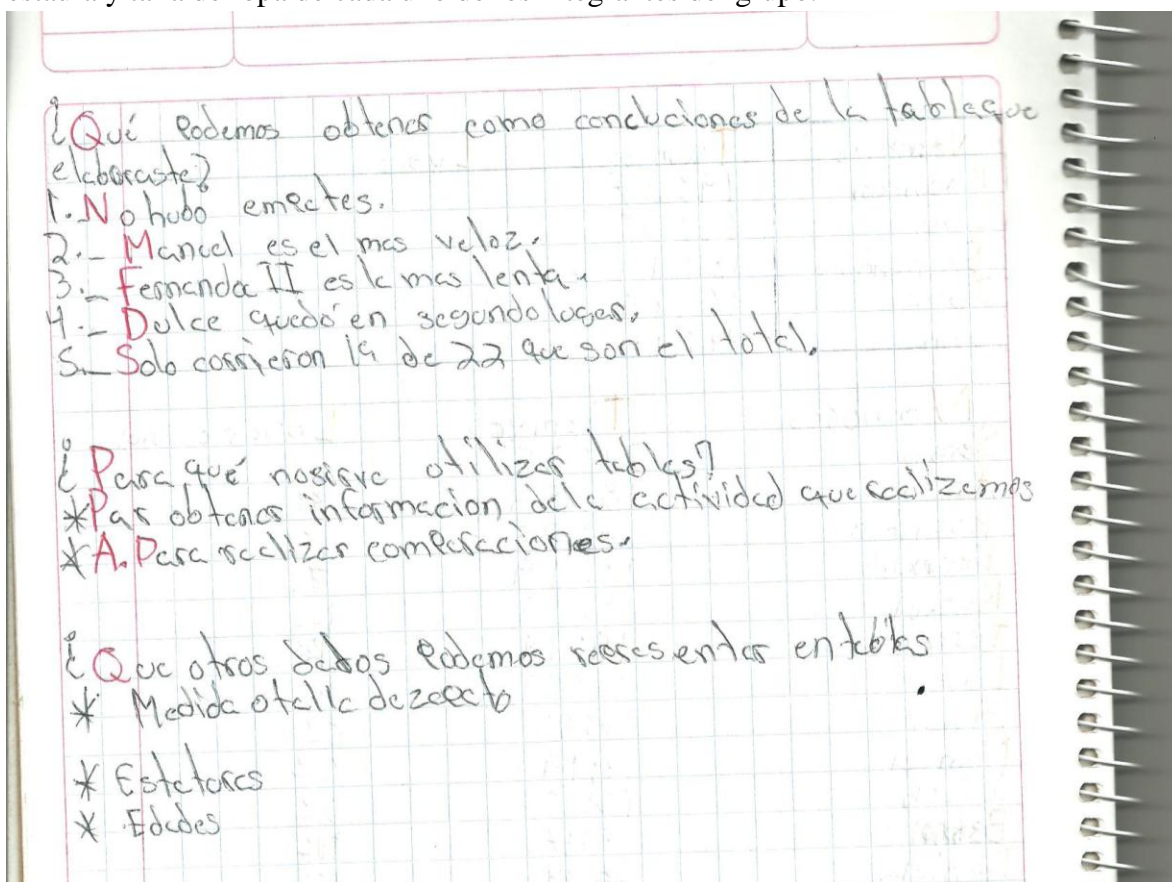 ¿Qué Podemos obtener como concluciones de la tabla que
elaboraste?
1. No hubo empates.
2.- Manuel es el mas veloz.
3.- Fernanda II es la mas lenta.
4.- Dulce quedó en segundo lugar.
5.- Solo corrieron 19 de 22 que son el total.
¿Para qué nosirve utilizar tablas?
*Par obtener informacion dela actividad que realizamos
*A. Para realizar comparaciones.
¿Que otros datos Podemos representar en tablas
* Medida o talla de zapato
* Estatoras
* Edades